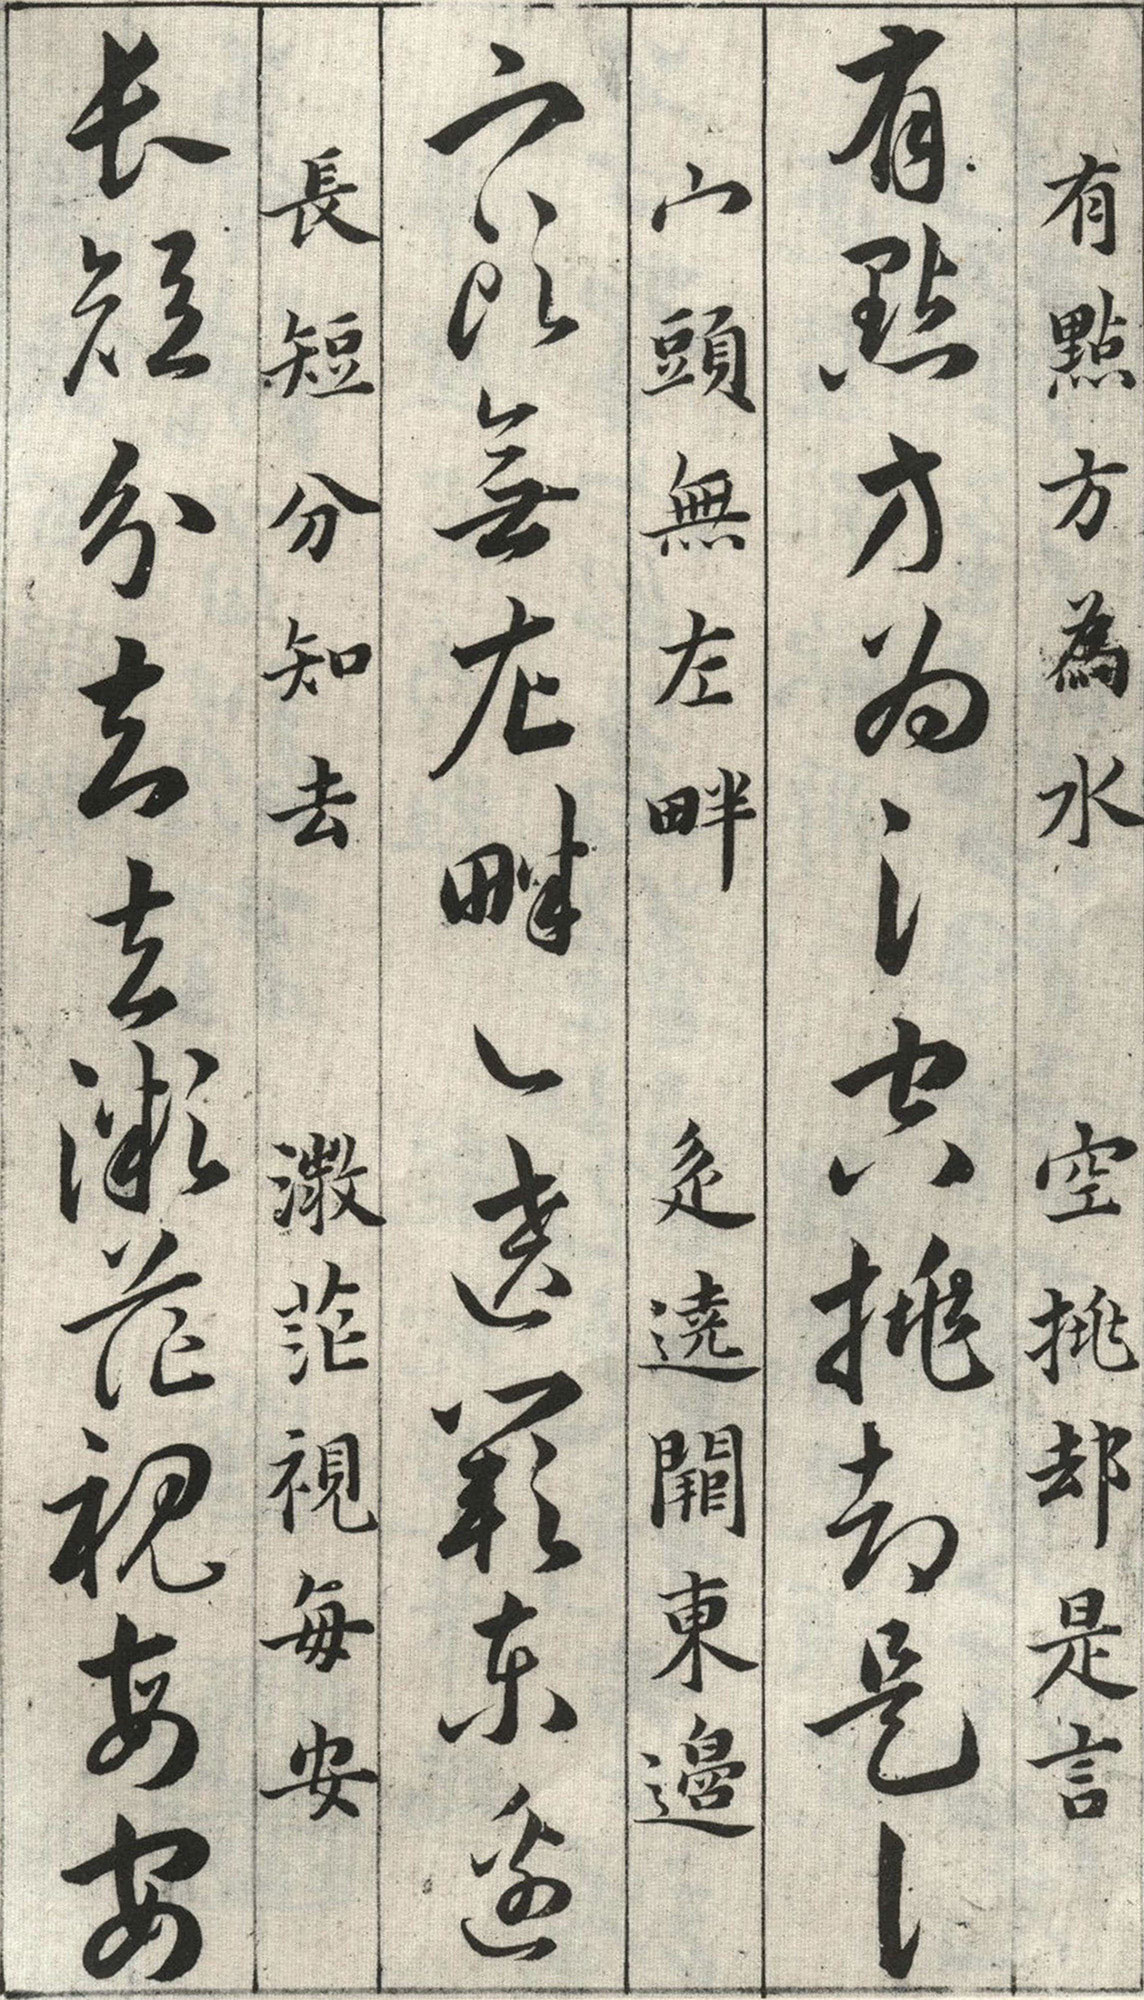 有點方為水　空挑却是言
有點方為水空挑却是言
宀頭無左畔　辵遶闕東邊
宀頭無左畔辵遶闕東邊
長短分知去　溦茫視每安
長短分知去溦茫視每安